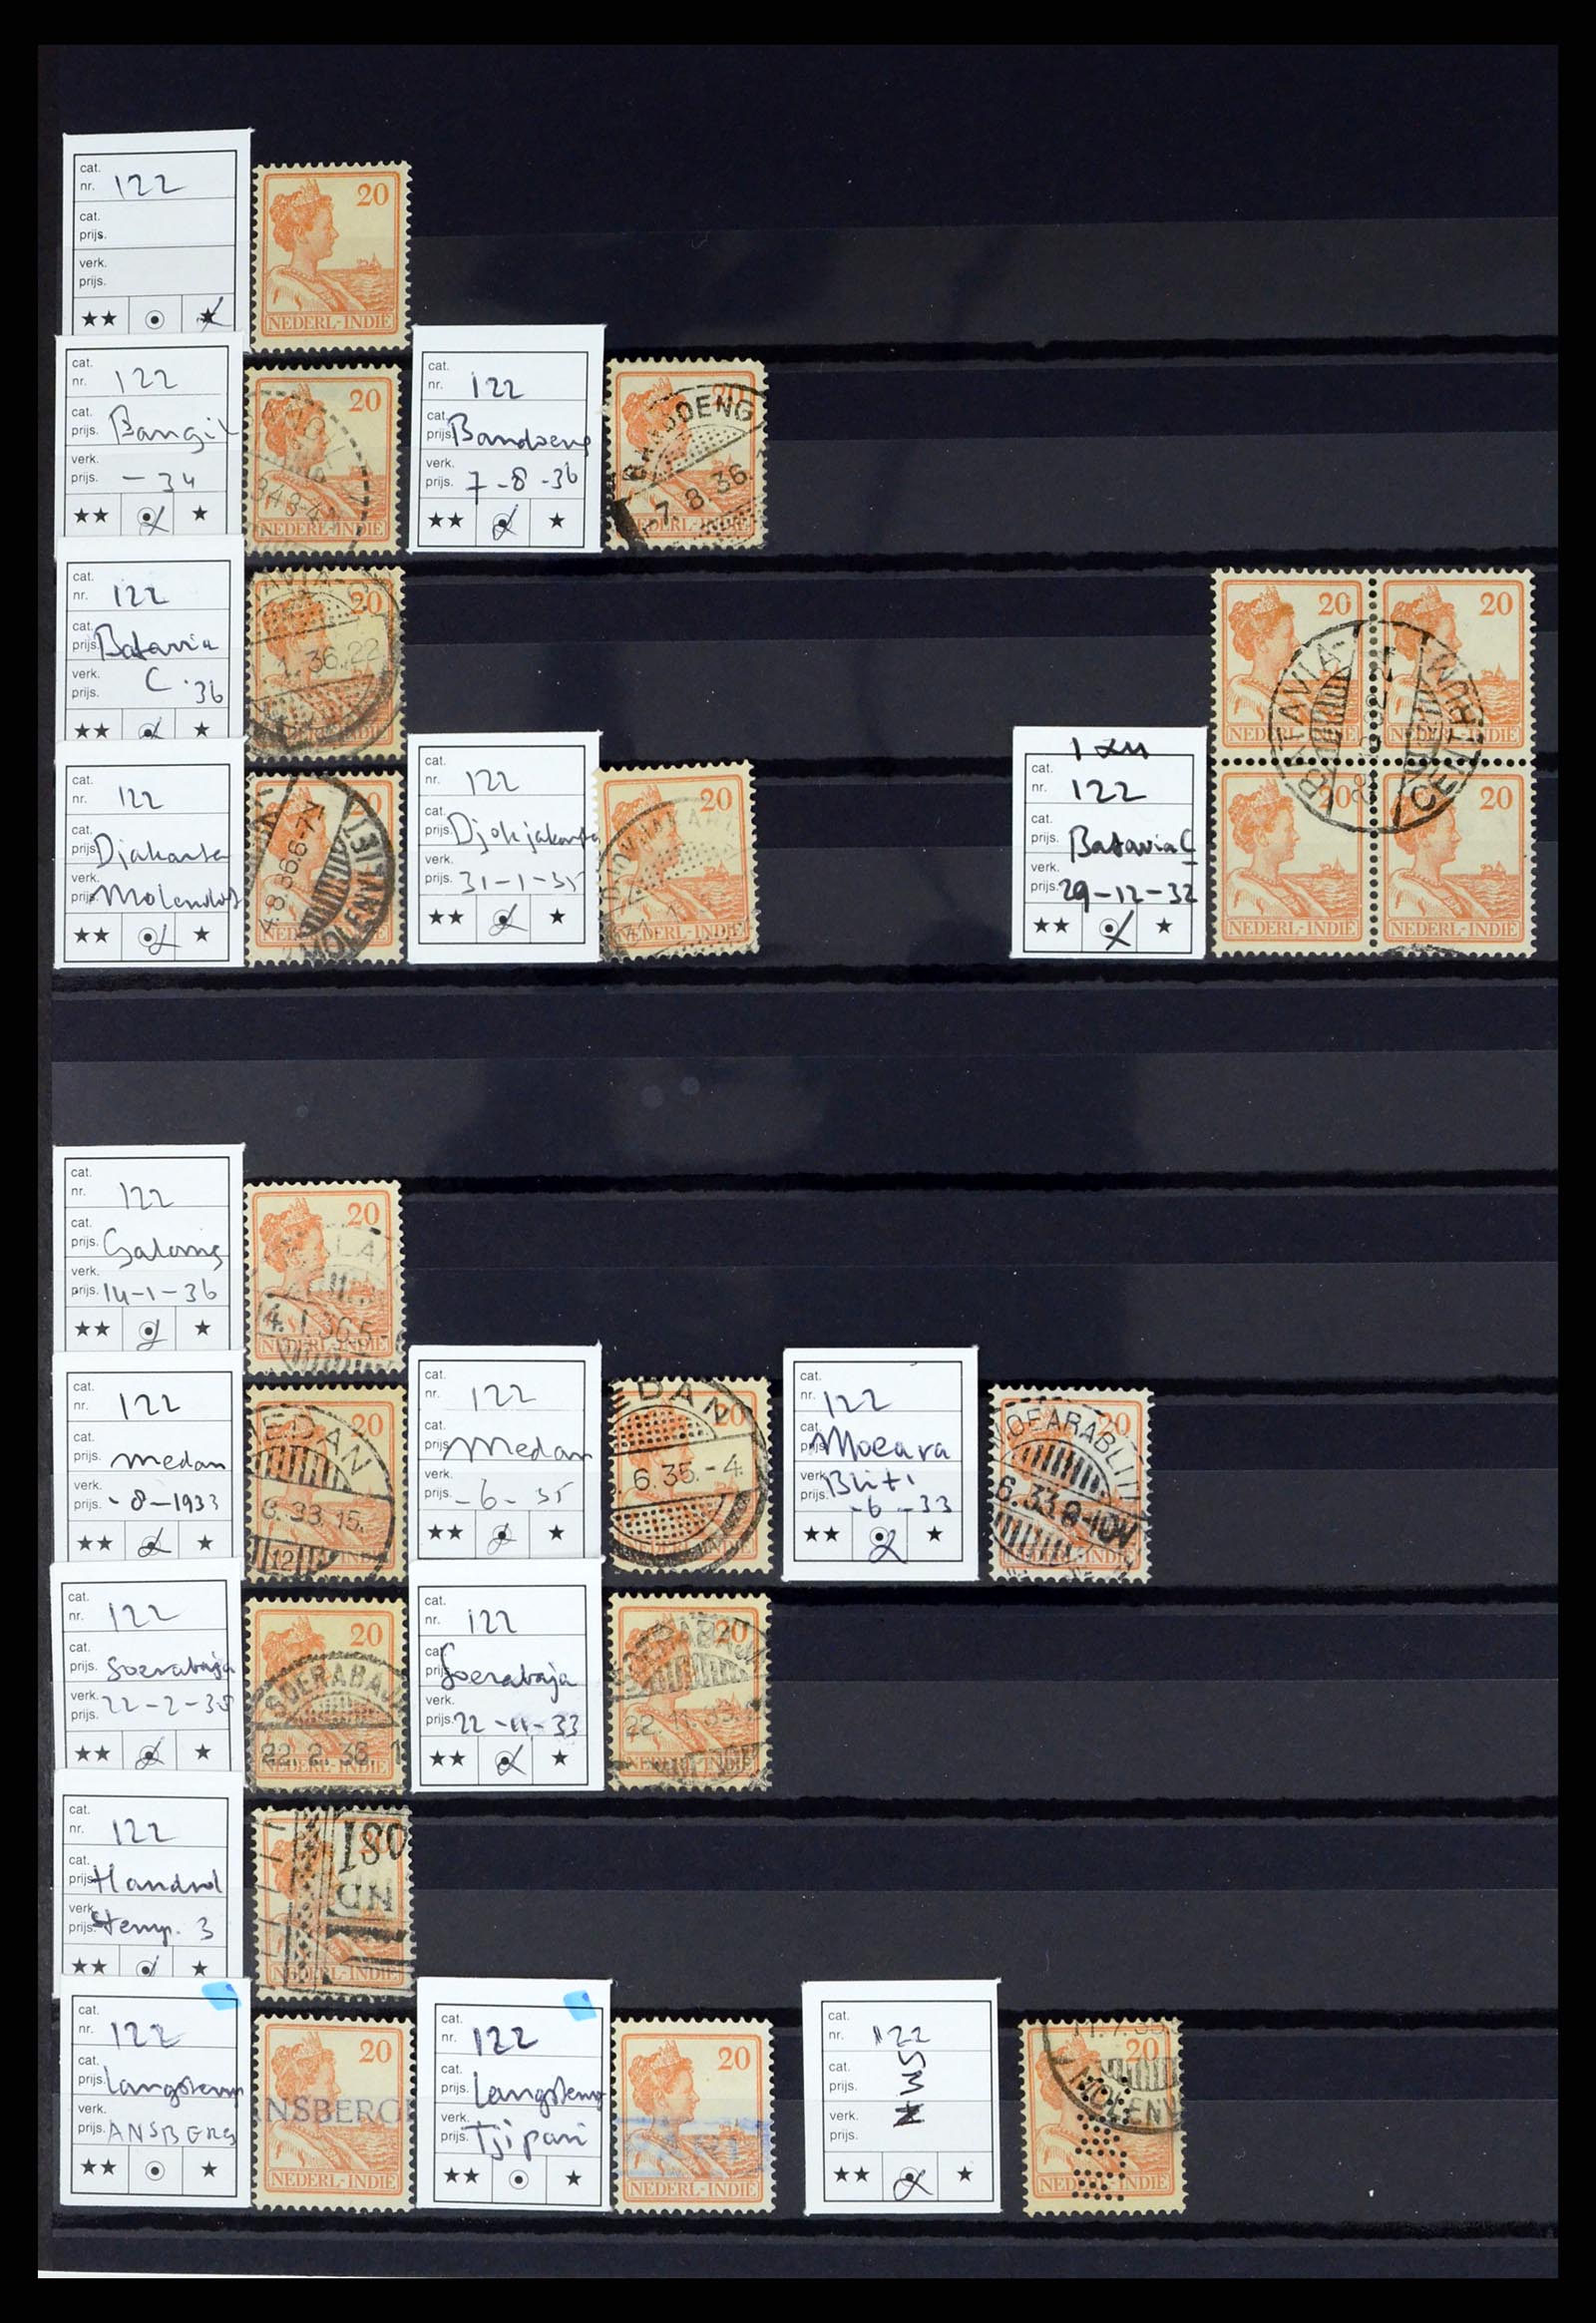 cat.
nr. 122
cat.
prijs.
verk.
prijs.
★★ ★
20
NEDERL-INDIE
cat.
nr. 122
cat.
prijs. Bangil
verk.
prijs. - 34
★★ ★
20
NEDERL-INDIE
cat.
nr. 122
cat.
prijs. Bandoeng
verk.
prijs. 7-8-36
★★ ★
20
BANDOENG
7.8.36.
cat.
nr. 122
cat.
prijs. Batavia
verk. C. 36
prijs.
★★ ★
20
1.36.22
20
20
NEDERL-INDIE
NEDERL-INDIE
BATAVIA-
CENTRUM
20
20
NEDERL-INDIE
NEDERL-INDIE
cat.
nr. 122
cat.
prijs. Djakarta
verk.
prijs. Molenvliet
★★ ★
4.8.36.6-7
MOLENVLIET
cat.
nr. 122
cat.
prijs. Djokjakarta
verk.
prijs. 31-1-35
★★ ★
20
NEDERL-INDIE
cat.
nr. 122
cat.
prijs. Batavia C
verk.
prijs. 29-12-32
★★ ★
cat.
nr. 122
cat.
prijs.
verk.
prijs. 14-1-36
★★ ★
20
4.1.36.5-
NEDERL-INDIE
cat.
nr. 122
cat.
prijs. Medan
verk.
prijs. -8-1933
★★ ★
20
EDAN
8.33.15.
12
cat.
nr. 122
cat.
prijs. Medan
verk.
prijs. -6-35
★★ ★
20
EDAN
6.35.-4.
cat.
nr. 122
cat.
prijs. Moeara
verk. Bliti
prijs. -6-33
★★ ★
20
OEARABLIT
6.33.9-10V
NEDERL-INDIE
cat.
nr. 122
cat.
prijs. Soerabaja
verk.
prijs. 22-2-38
★★ ★
20
SOERABAJ
22.2.38.1
NEDERL-INDIE
cat.
nr. 122
cat.
prijs. Soerabaja
verk.
prijs. 22-11-33
★★ ★
20
SOERABAJ
22.11.33.
NEDERL-INDIE
cat.
nr. 122
cat.
prijs. Handrol
verk.
prijs. stemp. 3
★★ ★
NEDERL-INDIE
cat.
nr. 122
cat.
prijs. Langstemp
verk.
prijs. ANSBERG
★★ ★
20
ANSBERG
NEDERL-INDIE
cat.
nr. 122
cat.
prijs. Langstemp
verk.
prijs. Tjipari
★★ ★
20
NEDERL-INDIE
cat.
nr. 122
cat.
prijs.
verk.
prijs.
★★ ★
20
MOLENV
NEDERL-INDIE